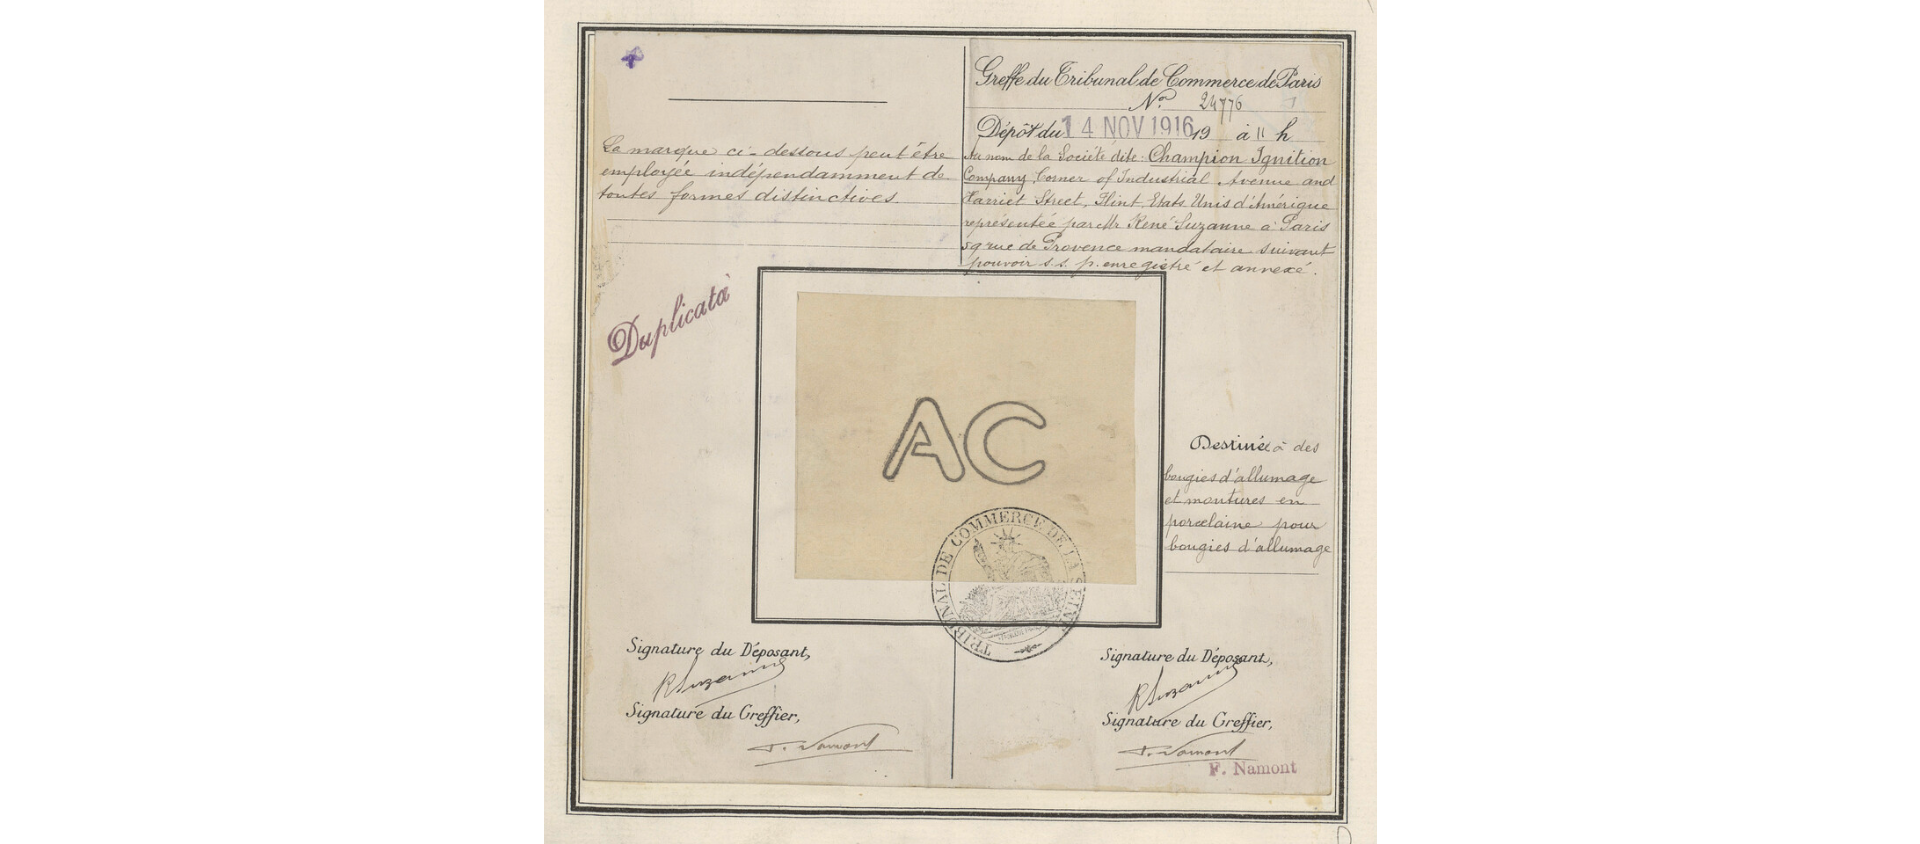 Greffe du Tribunal de Commerce de Paris
No. 24776
Dépôt du 14 NOV 1916 19 à 11 h
Au nom de la Société dite: Champion Ignition
Company, Corner of Industrial Avenue and
Harriet Street, Flint, Etats Unis d'Amérique
représentée par Mr René Suzanne à Paris
59 rue de Provence mandataire suivant
pouvoir s.s. p. enregistré et annexé.
La marque ci-dessous peut être
employée indépendamment de
toutes formes distinctives.
Duplicata
AC
TRIBUNAL DE COMMERCE DE LA SEINE
Destinée à des
bougies d'allumage
et montures en
porcelaine pour
bougies d'allumage
Signature du Déposant,
R Suzanne
Signature du Greffier,
F. Namont
Signature du Déposant,
R Suzanne
Signature du Greffier,
F. Namont
F. Namont